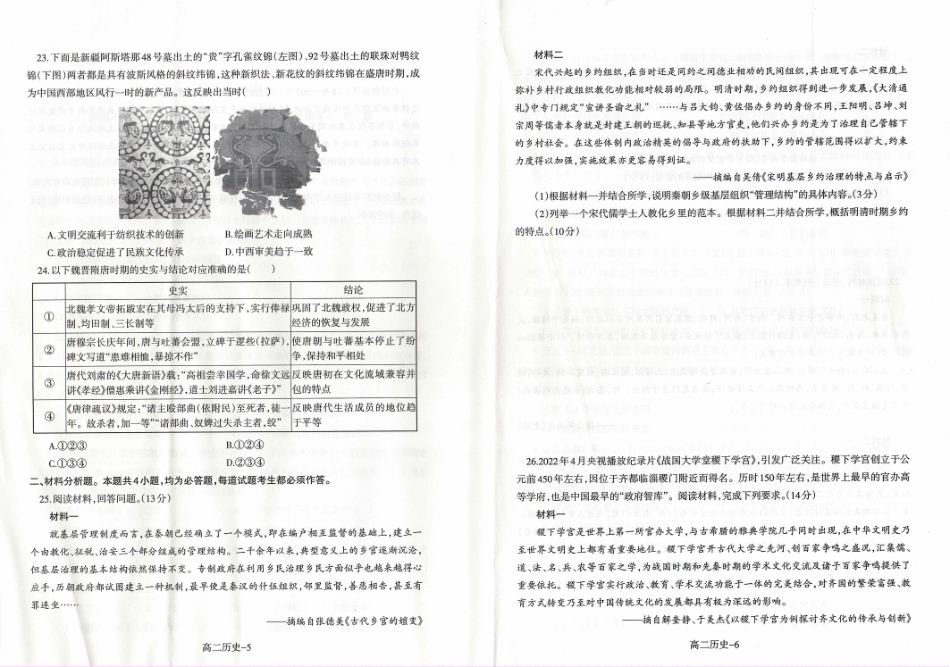 23.下面是新疆阿斯塔那48号墓出土的“贵”字孔雀纹锦(左图)、92号墓出土的联珠对鸭纹
锦(下图)两者都是具有波斯风格的斜纹纬锦,这种新织法、新花纹的斜纹纬锦在盛唐时期,成
为中国西部地区风行一时的新产品。这反映出当时(　　)
A.文明交流利于纺织技术的创新　　B.绘画艺术走向成熟
C.政治稳定促进了民族文化传承　　D.中西审美趋于一致
24.以下魏晋隋唐时期的史实与结论对应准确的是(　　)
史实　结论
① 北魏孝文帝拓跋宏在其母冯太后的支持下,实行俸禄 巩固了北魏政权,促进了北方
制、均田制、三长制等 经济的恢复与发展
② 唐穆宗长庆年间,唐与吐蕃会盟,立碑于逻些(拉萨), 使唐朝与吐蕃基本停止了纷
碑文写道“患难相恤,暴掠不作” 争,保持和平相处
③ 唐代刘肃的《大唐新语》载:“高祖尝幸国学,命徐文远 反映唐初在文化流域兼容并
讲《孝经》僧惠乘讲《金刚经》,道士刘进嘉讲《老子》” 包的特点
④ 《唐律疏议》规定:“诸主殴部曲(依附民)至死者,徒一 反映唐代生活成员的地位趋
年。故杀者,加一等”“诸部曲、奴婢过失杀主者,绞” 于平等
A.①②③　　B.①②④
C.①③④　　D.②③④
二、材料分析题。本题共4小题,均为必答题,每道试题考生都必须作答。
25.阅读材料,回答问题。(13分)
材料一
就基层管理制度而言,在秦朝已经确立了一个模式,即在编户相互监督的基础上,建立一
个由教化、征税、治安三个部分组成的管理结构。二千余年以来,典型意义上的乡官逐渐沉沦,
但基层治理的基本结构依然保持不变。专制政府在利用乡民治理乡民方面似乎也越来越得心
应手,历朝政府都试图建立一种机制,最早便是秦汉的什伍组织,邻里监督,善恶相告,甚至有
罪连坐……
——摘编自张德美《古代乡官的嬗变》
高二历史-5
材料二
宋代兴起的乡约组织,在当时还是同约之间德业相劝的民间组织,其出现可在一定程度上
弥补乡村行政组织教化功能相对较弱的局限。明清时期,乡约组织得到进一步发展,《大清通
礼》中专门规定“宣讲圣谕之礼”　……与吕大钧、黄佐倡办乡约的身份不同,王阳明、吕坤、刘
宗周等儒者本身就是封建王朝的巡抚、知县等地方官吏,他们兴办乡约是为了治理自己管辖下
的乡村社会。在这些体制内政治精英的倡导与政府的扶助下,乡约的管辖范围得以扩大,约束
力度得以加强,实施效果亦更容易得到证。
——摘编自吴倩《宋明基层乡约治理的特点与启示》
(1)根据材料一并结合所学,说明秦朝乡级基层组织“管理结构”的具体内容。(3分)
(2)列举一个宋代儒学士人教化乡里的范本。根据材料二并结合所学,概括明清时期乡约
的特点。(10分)
26.2022年4月央视播放纪录片《战国大学堂稷下学宫》,引发广泛关注。稷下学宫创立于公
元前450年左右,因位于齐都临淄稷门附近而得名。历时150年左右,是世界上最早的官办高
等学府,也是中国最早的“政府智库”。阅读材料,完成下列要求。(14分)
材料一
稷下学宫是世界上第一所官办大学,与古希腊的雅典学院几乎同时出现,在中华文明史乃
至世界文明史上都有着重要地位。稷下学宫开古代大学之先河、创百家争鸣之盛况,汇集儒、
道、法、名、兵、农等百家之学,为战国时期和先秦时期的学术文化交流及诸子百家争鸣提供了
重要依托。稷下学宫实行政治、教育、学术交流功能于一体的完美结合,对齐国的繁荣富强、教
育方式转变乃至对中国传统文化的发展都具有极为深远的影响。
——摘自解奎静、于美杰《以稷下学宫为例探讨齐文化的传承与创新》
高二历史-6